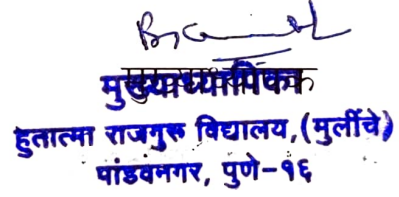 मुख्याध्यापिका
हुतात्मा राजगुरू विद्यालय, (मुलींचे)
पांडवनगर, पुणे-१६